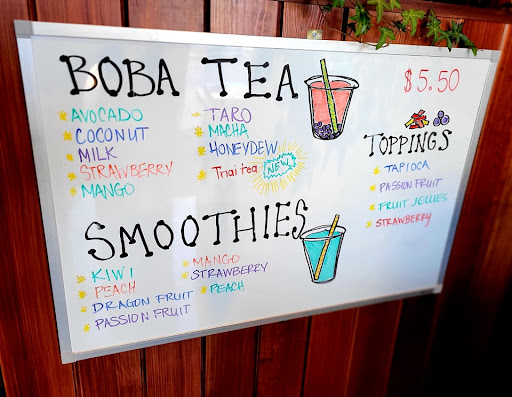 BOBA TEA
$5.50
AVOCADO
COCONUT
MILK
STRAWBERRY
MANGO
TARO
MACHA
HONEYDEW
Thai tea NEW
TOPPINGS
TAPIOCA
PASSION FRUIT
FRUIT JELLIES
STRAWBERRY
SMOOTHIES
KIWI
PEACH
DRAGON FRUIT
PASSION FRUIT
MANGO
STRAWBERRY
PEACH